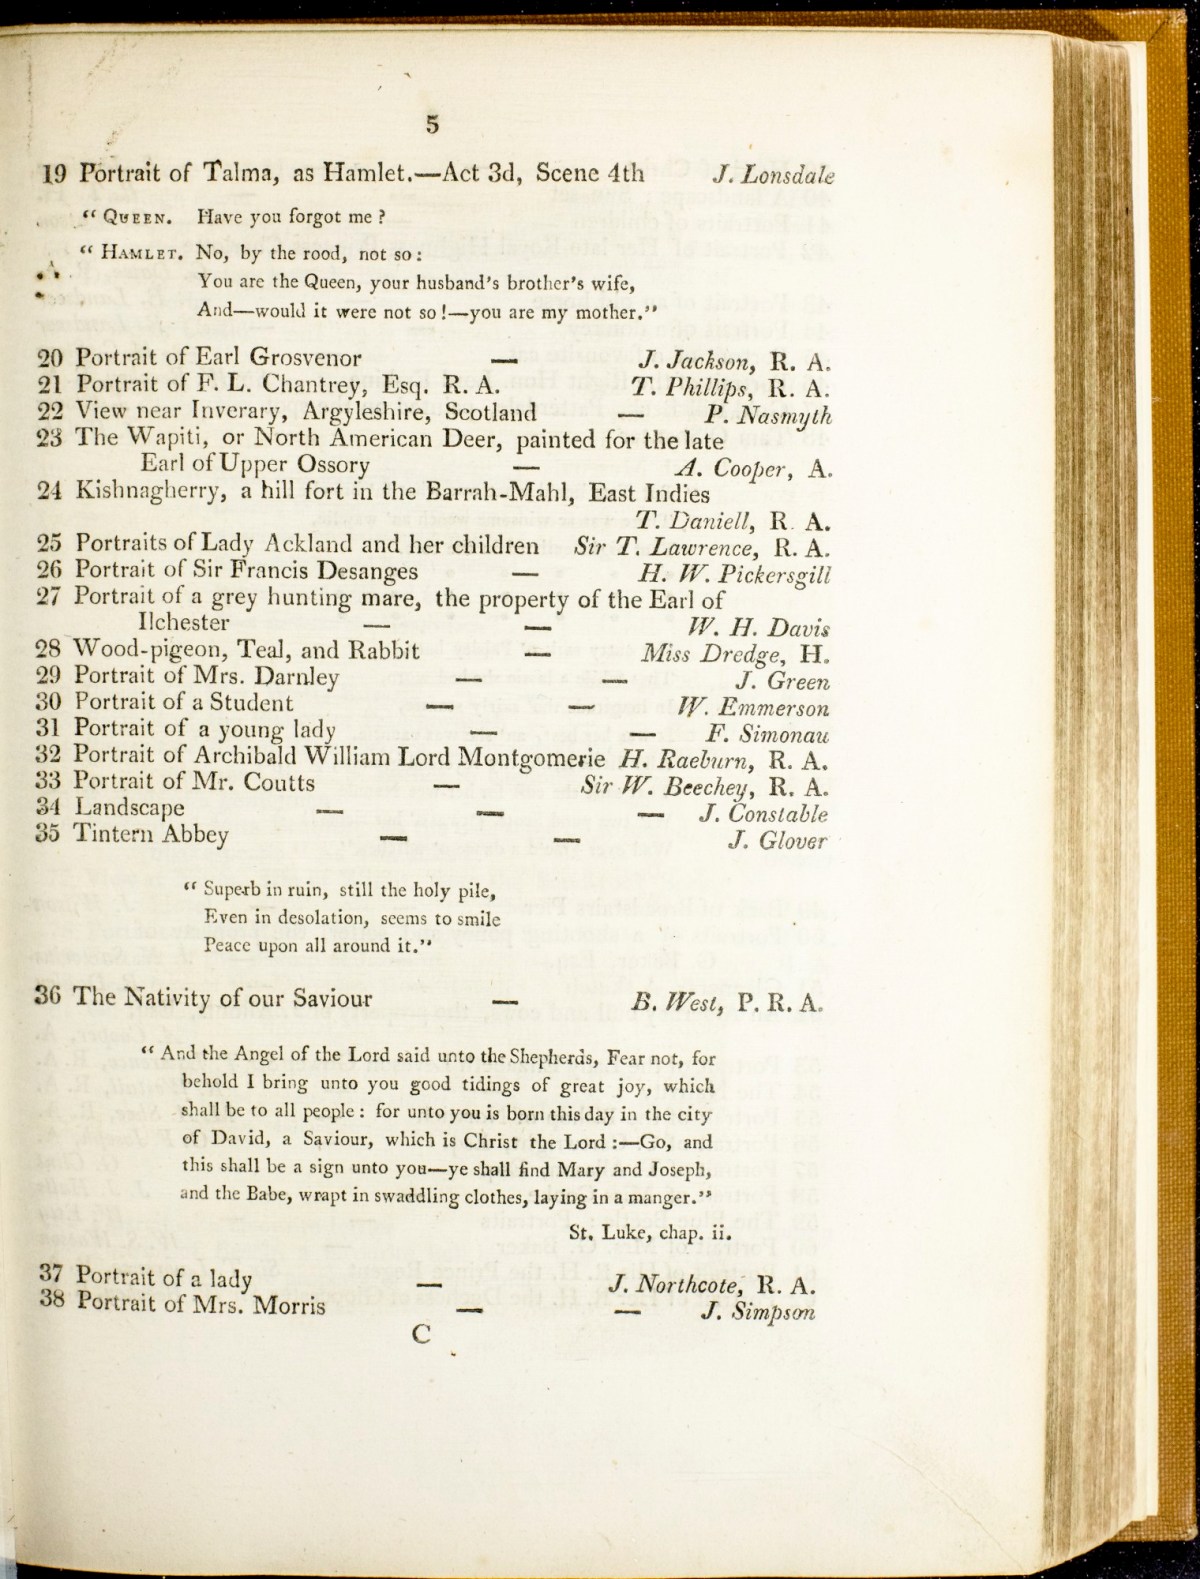 5
19 Portrait of Talma, as Hamlet.—Act 3d, Scene 4th J. Lonsdale
“ QUEEN. Have you forgot me ?
“ HAMLET. No, by the rood, not so :
You are the Queen, your husband's brother's wife,
And—would it were not so !—you are my mother.”
20 Portrait of Earl Grosvenor — J. Jackson, R. A.
21 Portrait of F. L. Chantrey, Esq. R. A. T. Phillips, R. A.
22 View near Inverary, Argyleshire, Scotland — P. Nasmyth
23 The Wapiti, or North American Deer, painted for the late
Earl of Upper Ossory — A. Cooper, A.
24 Kishnagherry, a hill fort in the Barrah-Mahl, East Indies
T. Daniell, R. A.
25 Portraits of Lady Ackland and her children Sir T. Lawrence, R. A.
26 Portrait of Sir Francis Desanges — H. W. Pickersgill
27 Portrait of a grey hunting mare, the property of the Earl of
Ilchester — — W. H. Davis
28 Wood-pigeon, Teal, and Rabbit — Miss Dredge, H.
29 Portrait of Mrs. Darnley — — J. Green
30 Portrait of a Student — — W. Emmerson
31 Portrait of a young lady — — F. Simonau
32 Portrait of Archibald William Lord Montgomerie H. Raeburn, R. A.
33 Portrait of Mr. Coutts — Sir W. Beechey, R. A.
34 Landscape — — — J. Constable
35 Tintern Abbey — — J. Glover
“ Superb in ruin, still the holy pile,
Even in desolation, seems to smile
Peace upon all around it.”
36 The Nativity of our Saviour — B. West, P. R. A.
“ And the Angel of the Lord said unto the Shepherds, Fear not, for
behold I bring unto you good tidings of great joy, which
shall be to all people : for unto you is born this day in the city
of David, a Saviour, which is Christ the Lord :—Go, and
this shall be a sign unto you—ye shall find Mary and Joseph,
and the Babe, wrapt in swaddling clothes, laying in a manger.”
St. Luke, chap. ii.
37 Portrait of a lady — J. Northcote, R. A.
38 Portrait of Mrs. Morris — — J. Simpson
C